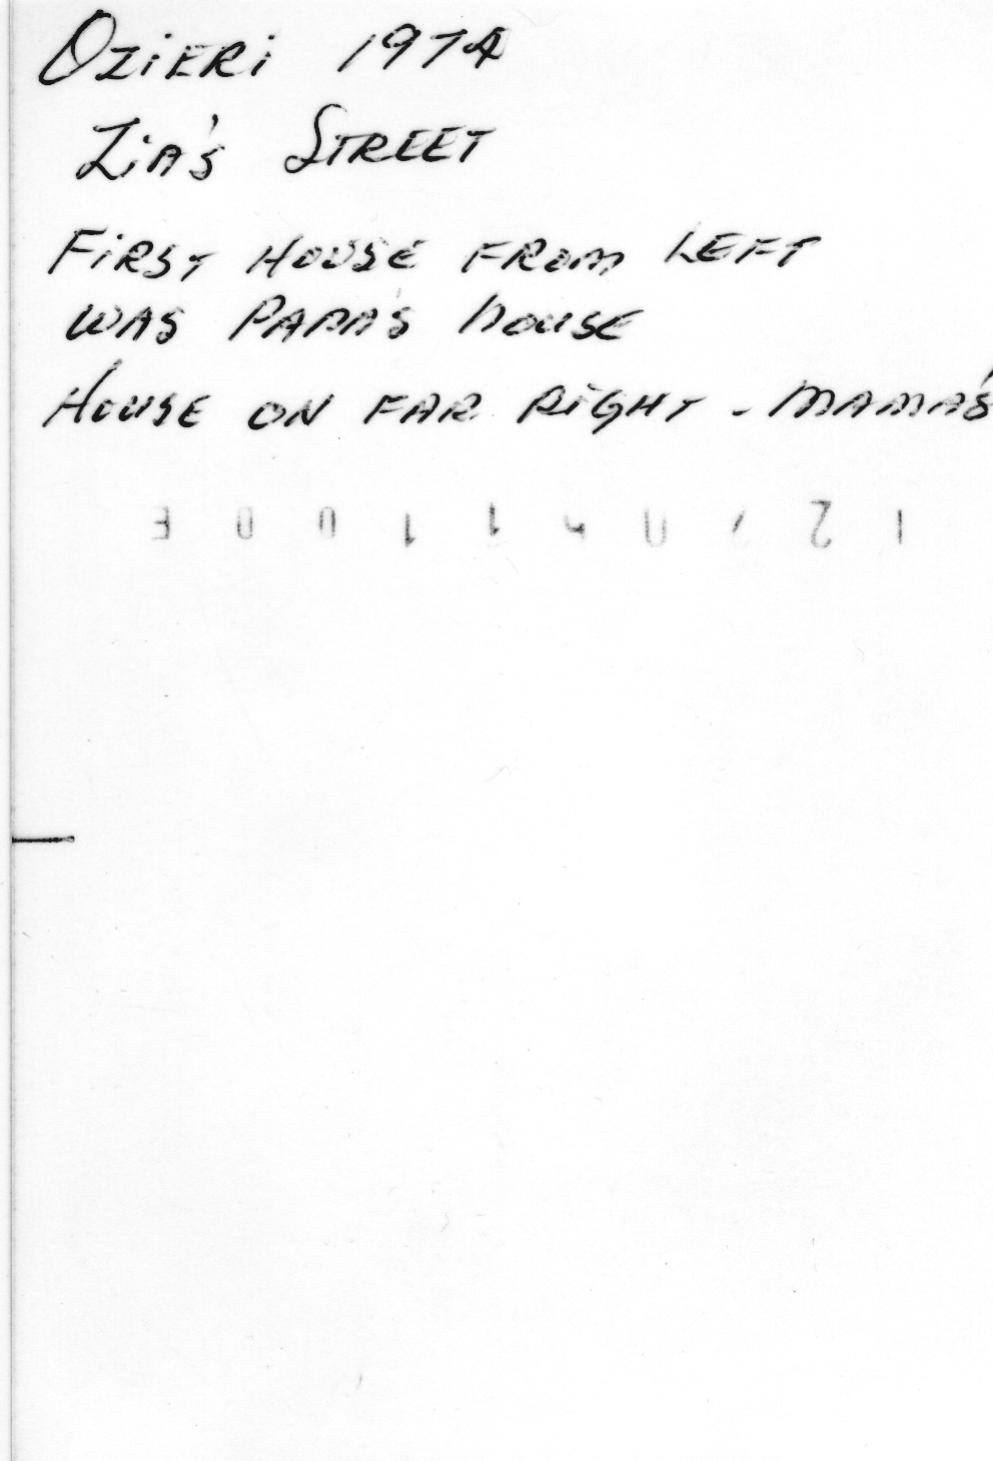 OZiERi 1974
ZiA's STREET
FiRST HOUSE FROM LEFT
WAS PAPA'S house
HOUSE ON FAR RiGHT - MAMA'S